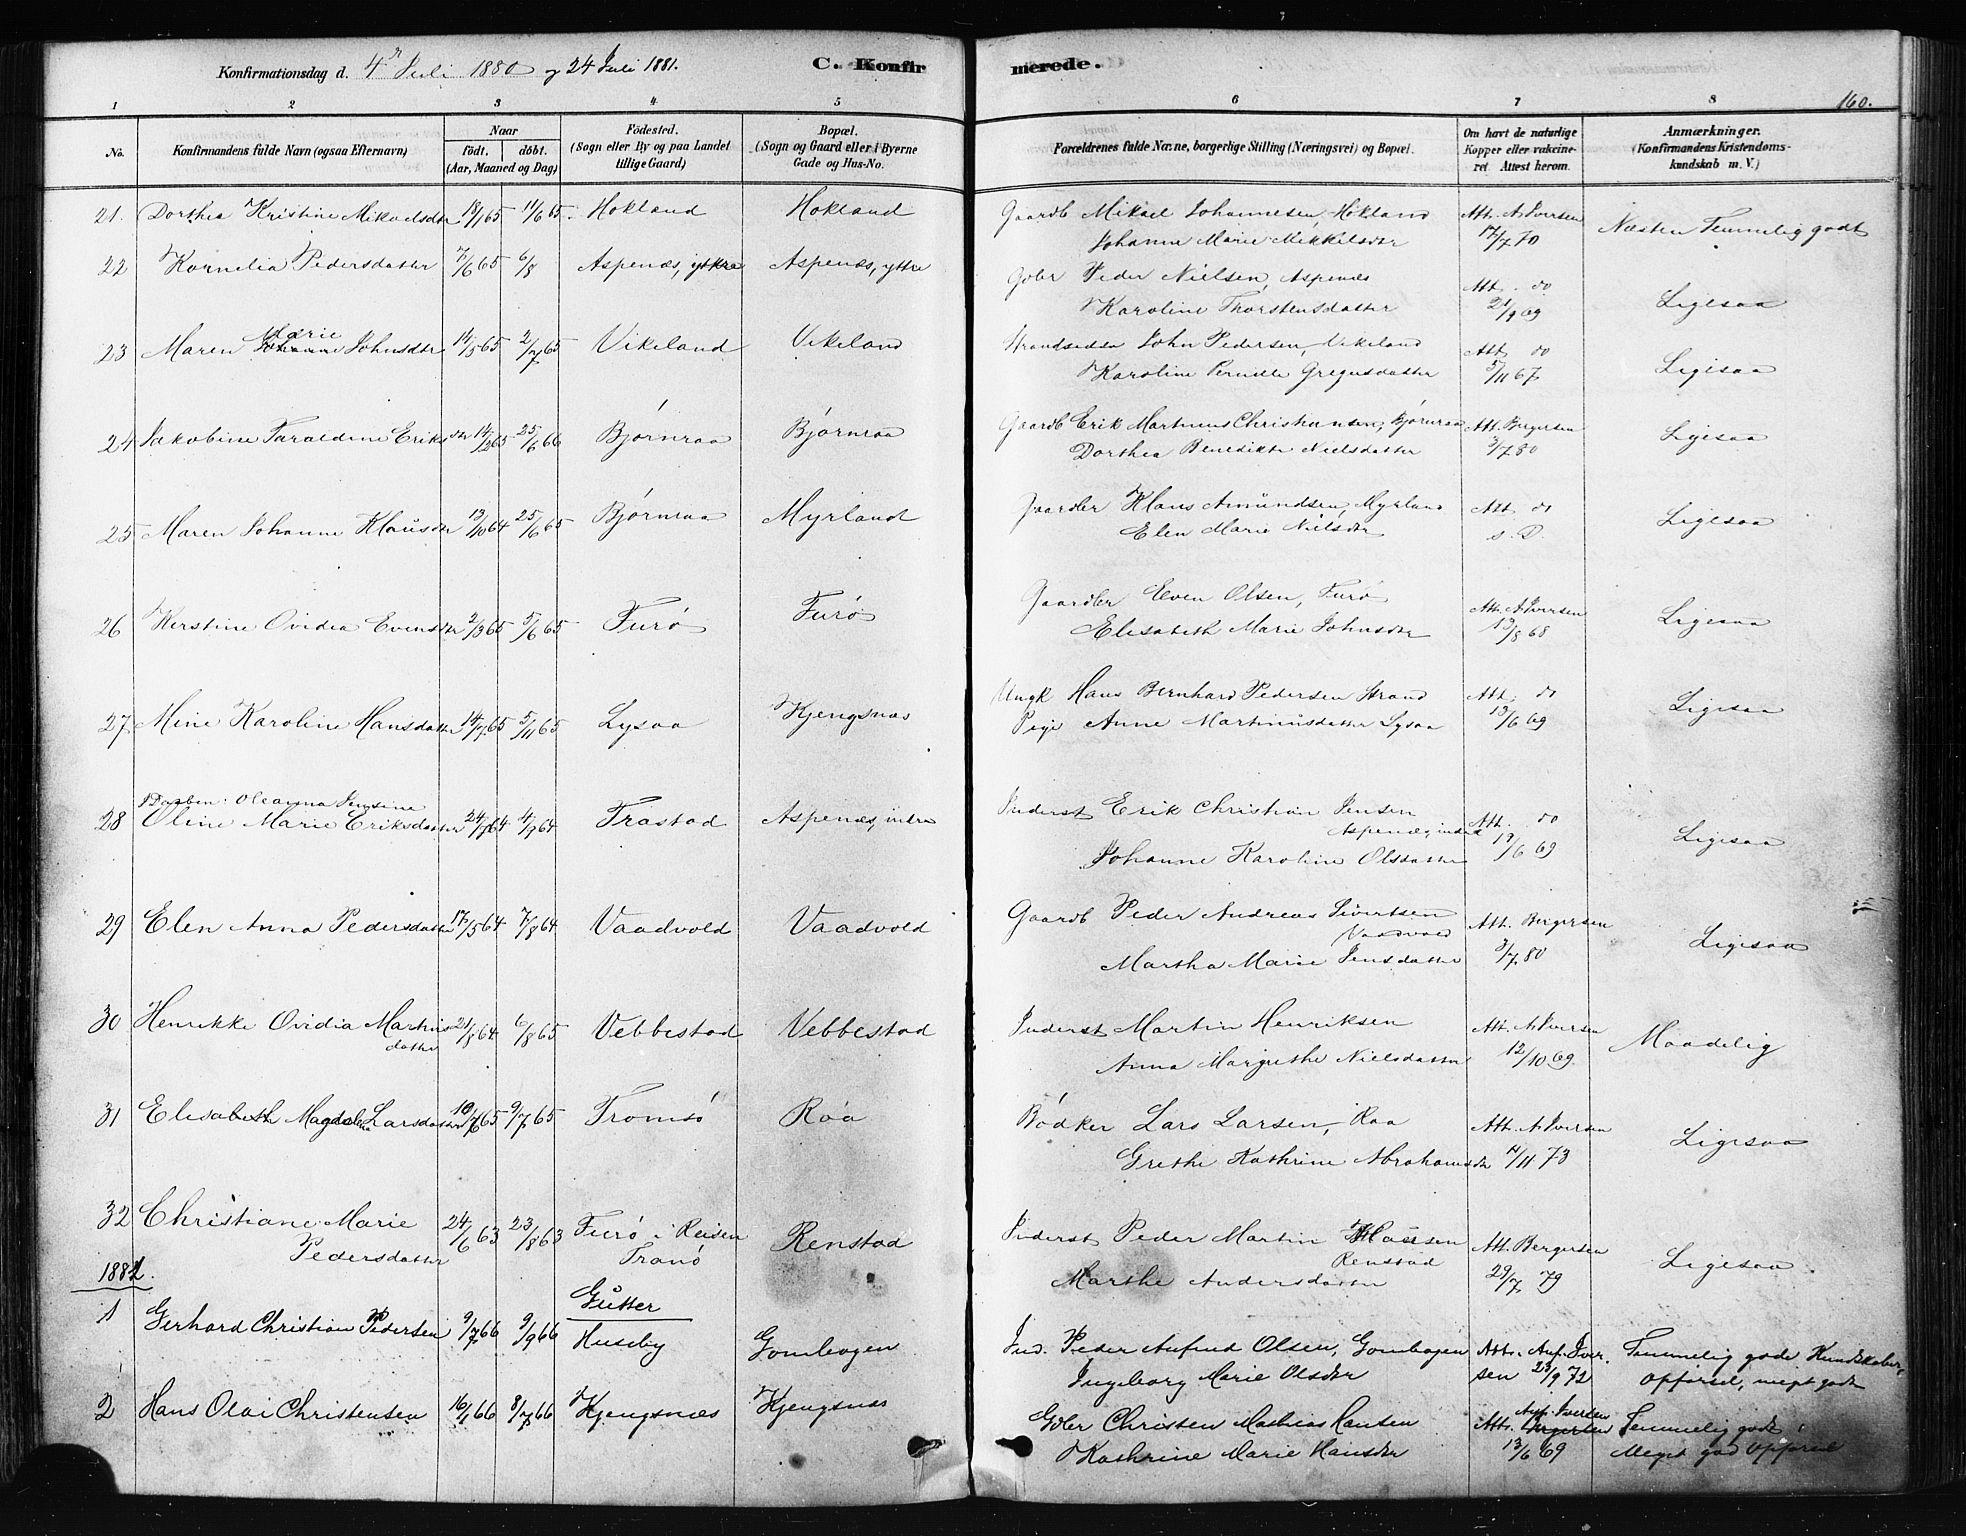 Konfirmationsdag d. 4de Juli 1880 og 24 Juli 1881. C. Konfir merede.
160.
1 2 3 4 5 6 7 8
No. Konfirmandens fulde Navn (ogsaa Efternavn) Naar født. døbt. (Aar, Maaned og Dag) Fødested. (Sogn eller By og paa Landet tillige Gaard) Bopæl. (Sogn og Gaard eller i Byerne Gade og Hus-No. Forældrenes fulde Navne, borgerlige Stilling (Næringsvei) og Bopæl. Om havt de naturlige Kopper eller vakcineret. Attest herom. Anmærkninger. (Konfirmandens Kristendomskundskab m. V.)
21. Dorthea Kristine Mikaelsdtr 18/1 65 11/6 65. Hokland Hokland Gaardb Mikael Johannesen, Hokland Att. A. Iversen Næsten Temmelig godt
Johanne Marie Mikkelsdtr 17/7 70
22 Kornelia Pedersdatter 7/6 65 6/8 Aspenæs, yttre Aspenæs, yttre Gbbr Peder Nielsen, Aspenæs Att. do Ligesaa
Karoline Thorstensdatter 21/9 69
23 Maren Marie Johanne Johnsdtr 14/5 65 2/7 65 Vikeland Vikeland Strandsidder John Pedersen, Vikeland Att do Ligesaa
Karoline Pernille Gregusdatter 5/11 67
24 Jakobine Taraldine Eriksdtr 14/2 65 25/6 66 Bjørnraa Bjørnraa Gaardb Erik Martinus Christiansen, Bjørnraa Att. Bergersen Ligesaa
Dorthea Benedikte Nielsdatter 3/7 80
25 Maren Johanne Klausdtr 13/10 64 25/6 65 Bjørnraa Myrland Gaardbr Klaus Amundsen, Myrland Att do Ligesaa
Elen Marie Nielsdtr s. D.
26 Kerstine Ovidia Evensdtr 2/3 65 5/6 65 Furø Furø Gaardbr Even Olsen, Furø Att. A. Iversen Ligesaa
Elisabeth Marie Johnsdtr 13/8 68
27 Mine Karoline Hansdatter 14/7 65 5/11 65 Lysaa Kjengsnæs Ungk Hans Bernhard Pedersen Strand Att. do Ligesaa
Pige Anne Martinusdatter Lysaa 13/6 69
Oleanna Jensine
28 Oline Marie Eriksdatter 24/7 64 4/9 64 Trastad Aspenæs, indre Inderst Erik Christian Jensen Att. do Ligesaa
Aspenæs, indre
Johanne Karoline Olsdatter 19/6 69
29 Elen Anna Pedersdatter 17/5 64 7/8 64 Vaadvold Vaadvold Gaardb Peder Andreas Sivertsen Att. Bergersen Ligesaa
Vaadvold
Martha Marie Jensdatter 3/7 80
30 Henrikke Ovidia Martinsdatter 21/8 64 6/8 65 Vebbestad Vebbestad Inderst Martin Henriksen Att. A. Iversen Maadelig
Anna Margrethe Nielsdatter 12/10 69
31 Elisabeth Magdalena Larsdatter 10/6 65 9/7 65 Tromsø Raa Bødker Lars Larsen, Raa Att. A. Iversen Ligesaa
Grethe Kathrine Abrahamsdtr 4/11 73
32 Christiane Marie 24/6 63 23/8 63 Furø i Reisen Renstad Inderst Peder Martin Hansen Att. Bergersen Ligesaa
Pedersdatter Tranø Renstad
Marthe Andersdatter 29/7 79
1881.
Gutter
1 Gerhard Christian Pedersen 9/7 66 9/9 66 Huseby Gombogen Ind. Peder Aufind Olsen, Gombogen Att. Anf. Iver- Temmelig gode Kundskaber,
Ingeborg Marie Olsdtr sen 23/9 72 Opførsel, meget godt
2 Hans Olai Christensen 16/1 66 8/7 66 Kjengsnæs Kjengsnæs Gdbr Christen Mathias Hansen Att. Anf. Iversen Bergersen Temmelig godt
Kathrine Marie Hansdtr 13/6 69 Meget god Opførsel